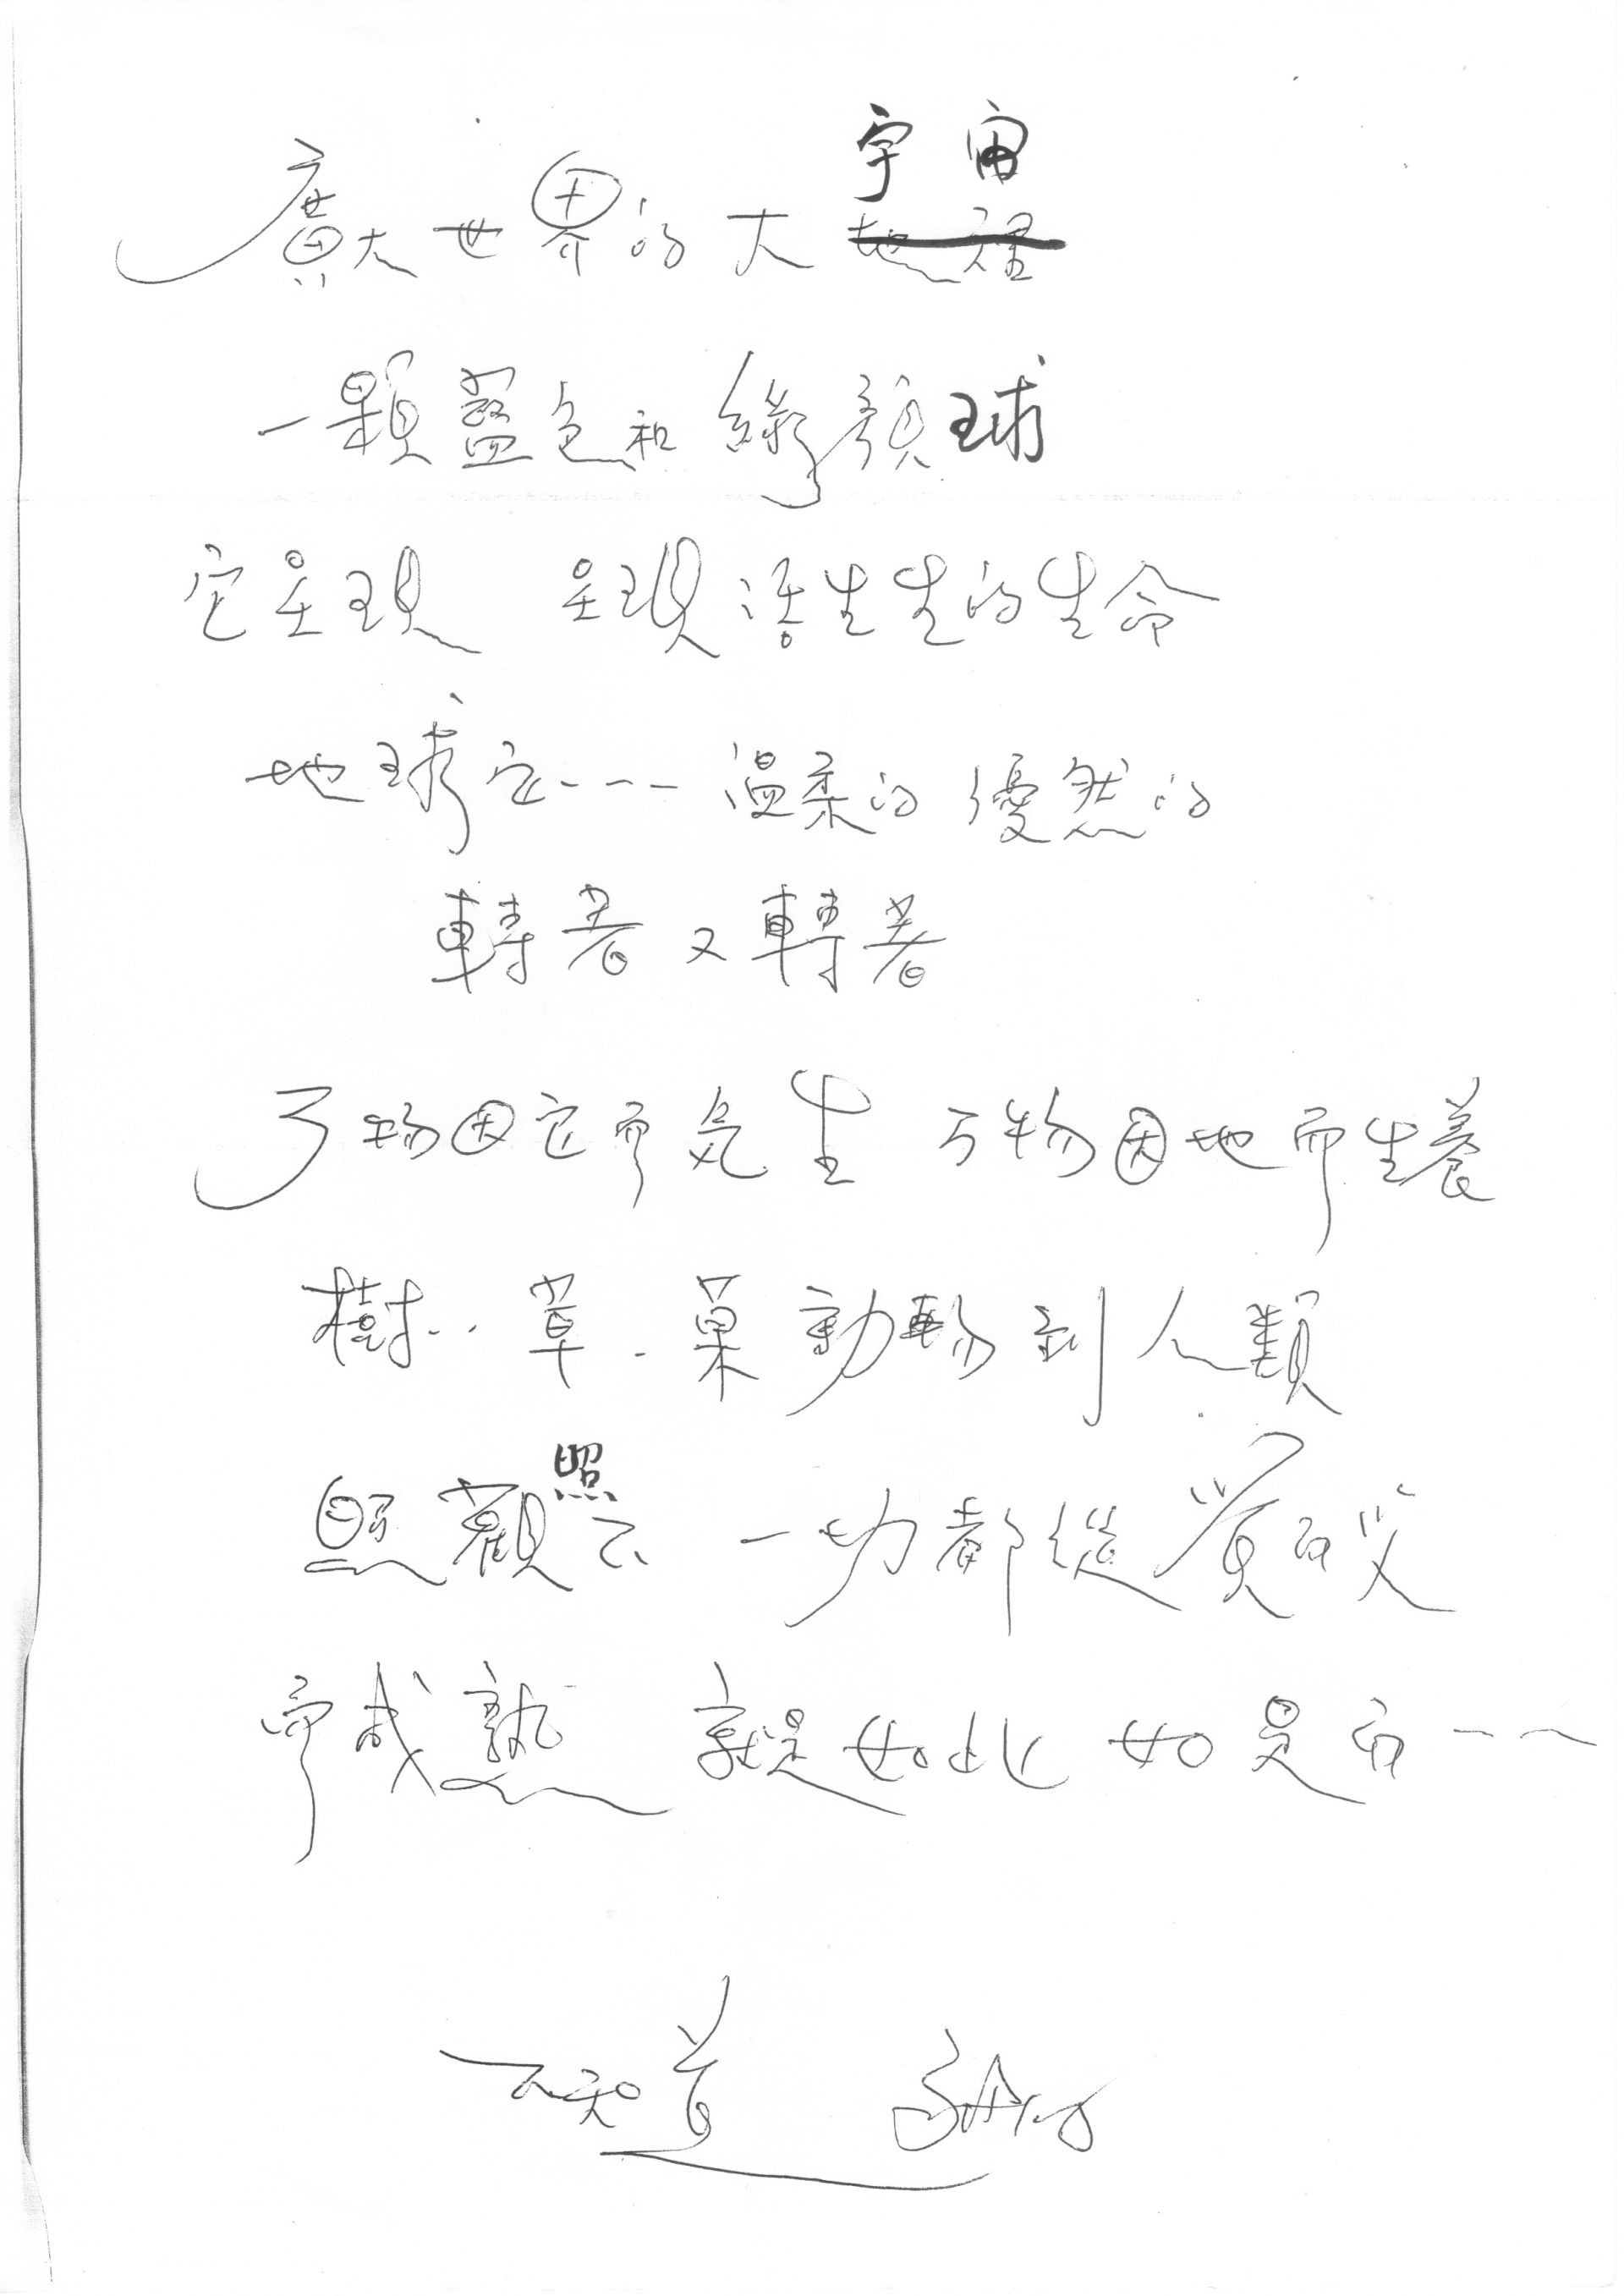 廣大世界的大宇宙
一顆藍色和綠顏球
它呈現 呈現活生生的生命
地球它--- 溫柔的優然的
轉著又轉著
万物因它而気生 万物因地而生養
樹.. 草. 菓動物到人類
照觀照下 一切都從
而成熟 就是如此 如是的---
不知道